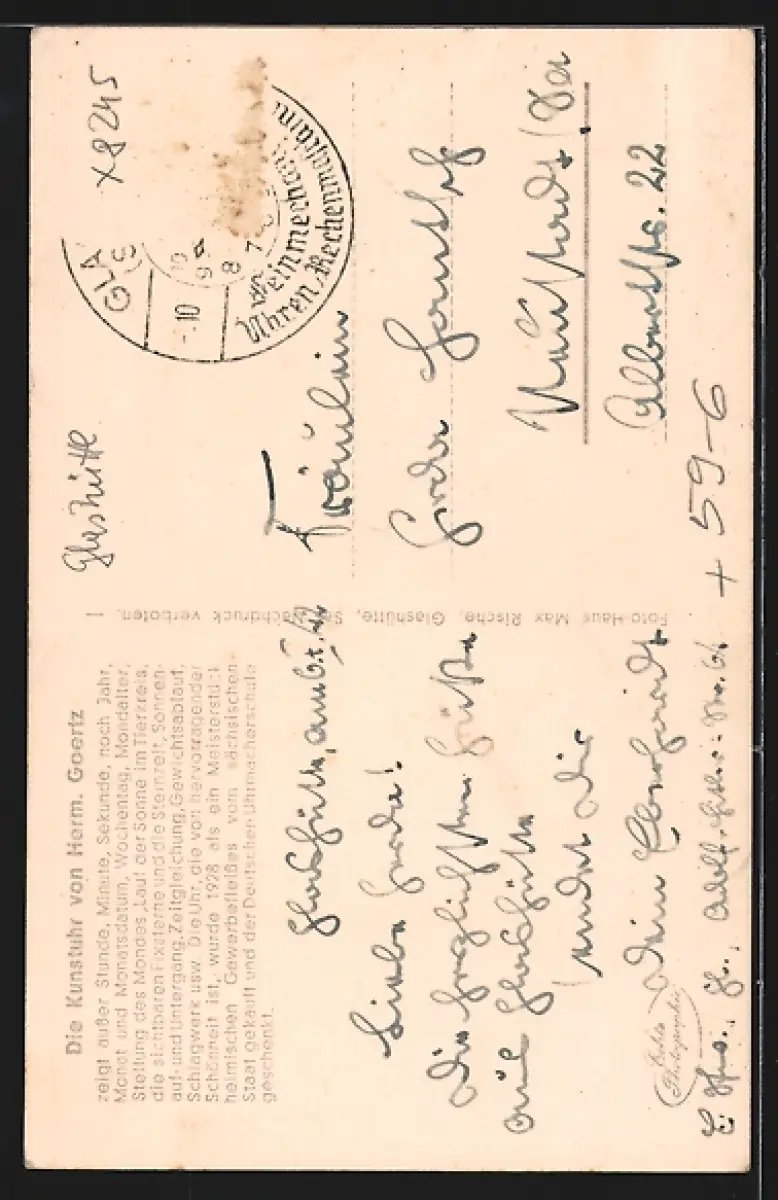 Die Kunstuhr von Herm. Goertz
zeigt außer Stunde, Minute, Sekunde, noch Jahr,
Monat und Monatsdatum, Wochentag, Mondalter,
Stellung des Mondes, Lauf der Sonne im Tierkreis,
die sichtbaren Fixsterne und die Sternzeit, Sonnen-
auf- und untergang, Zeitgleichung, Gewichtsablauf,
Schlagwerk usw. Die Uhr, die von hervorragender
Schönheit ist, wurde 1928 als ein Meisterstück
heimischen Gewerbefleißes vom sächsischen
Staat gekauft und der Deutschen Uhrmacherschule
geschenkt.
Glashütte, am
Liebe Gerda!
Die herzlichsten Grüße
aus Glashütte
sendet Dir
Dein Eberhard
Adolf-Hitler-Str.
Echte
Photographie
Foto-Haus Max Rische, Glashütte, Sa. Nachdruck verboten.
Glashütte
x8245
GLA
-.10
9
8
7
Feinmechanik
Uhren, Rechenmaschin
Fräulein
Gerda
Neustadt
Albertstr. 22
+59-6